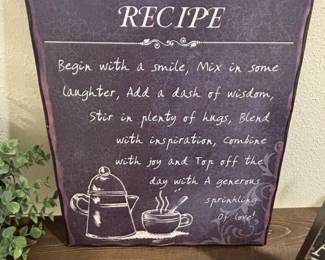 RECIPE
Begin with a smile, Mix in some
laughter, Add a dash of wisdom,
Stir in plenty of hugs, Blend
with inspiration, Combine
with joy and Top off the
day with A generous
sprinkling
Of love!